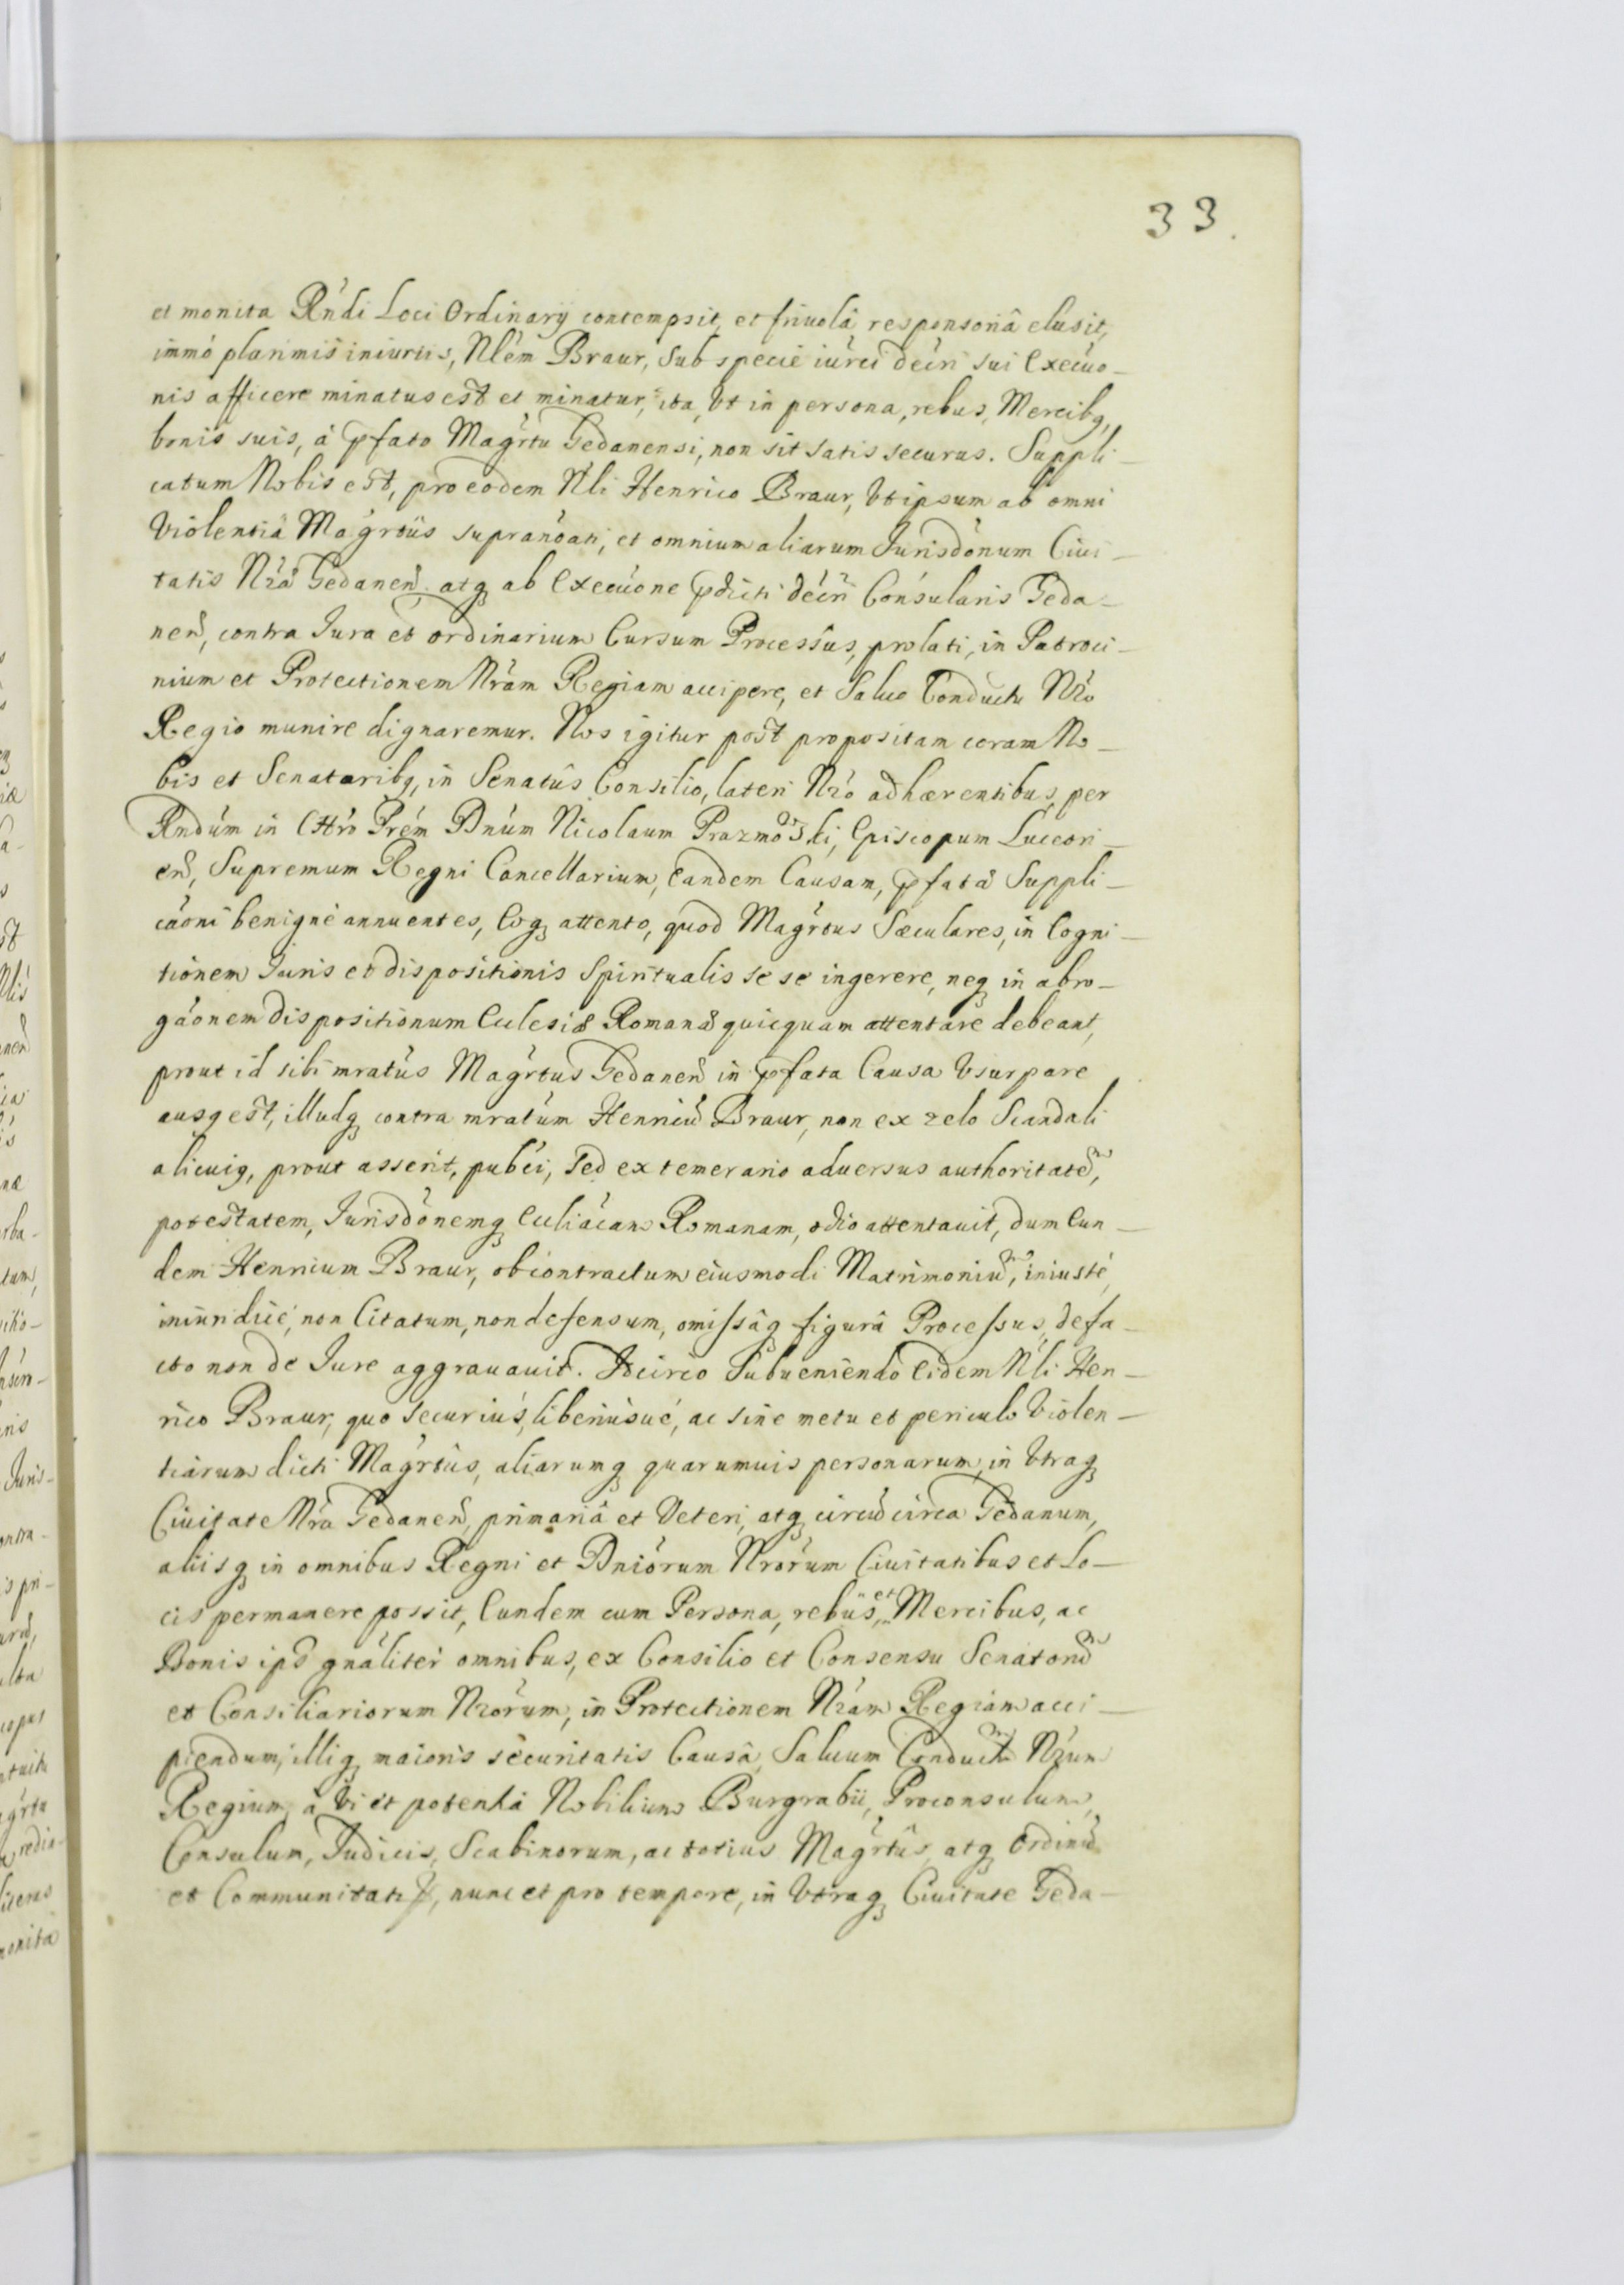 33.
et monita Rńdi Loci Ordinarÿ contempsit, et friuolâ responsoriâ elusit,
immó plurimis iniuriis, Nlem Braur, sub specie iurei decri sui Execuo-
nis afficere minatus est et minatur, ita, Vt in persona, rebus, Mercibq,
bonis suis, á pfato Magrtu Gedanensi, non sit satis securus. Suppli-
catum Nobis est, pro eodem Nli Henrico Braur, Vt ipsum ab omni
Violentiâ Magrtûs supranoati, et omnium aliarum Jurisdonum Ciui-
tatis Nrae Gedanen. atq ab Execuone pdicti decri Consularis Geda-
nen, contra Jura et ordinarium Cursum Processûs, prolati, in Patroci-
nium et Protectionem Nram Regiam accipere, et Saluo Conductu Nro
Regio munire dignaremur. Nos igitur post propositam coram No-
bis et Senatoribq, in Senatûs Consilio, lateri Nro adhærentibus, per
Rndum in Chro Prem Dnum Nicolaum Prazmowski, Episcopum Luceori-
en, Supremum Regni Cancellarium, Eandem Causam, pfatæ Suppli-
caoni benigné annuentes, Eoq attento, quod Magrtus Sæculares, in Cogni-
tionem Juris et dispositionis Spiritualis se se ingerere, neq in abro-
gaonem dispositionum Ecclesiæ Romanæ quicquam attentare debeant,
prout id sibi mratus Magrtus Gedanen in pfata Causa Vsurpare
ausq est, illudq contra mratum Henricu Braur, non ex zelo Scandali
alicuiq, prout asserit, pubci, sed ex temerario aduersus authoritate,
potestatem, Jurisdonemq Eccliacam Romanam, odio attentauit, dum Eun-
dem Henricum Braur, ob contractum eiusmodi Matrimoniu, iniusté,
iniuridicé, non Citatum, non defensum, omissâq figurâ Processus, de fa-
cto non de Jure aggrauauit. Idcirco Subueniendo Eidem Nli Hen-
rico Braur, quo securiús, liberiusué, ac sine metu et periculo Violen-
tiarum dicti Magrtûs, aliarumq quarumuis personarum, in Vtraq
Ciuitate Nra Gedanen, primariâ et Veteri, atq circu circa Gedanum,
aliisq in omnibus Regni et Dniorum Nrorum Ciuitatibus et Lo-
cis permanere possit, Eundem cum Persona, rebus, et Mercibus, ac
Bonis ips gnaliter omnibus, ex Consilio et Consensu Senatoru
et Consiliariorum Nrorum, in Protectionem Nram Regiam acci-
piendum, illiq maioris securitatis Causâ, Saluum Conductu Nrum
Regium, á Vi et potentiâ Nobilium Burgrabii, Proconsulum,
Consulum, Judicis, Scabinorum, ac totius Magrtûs, atq Ordinu
et Communitatis, nunc et pro tempore, in Vtraq Ciuitate Geda-